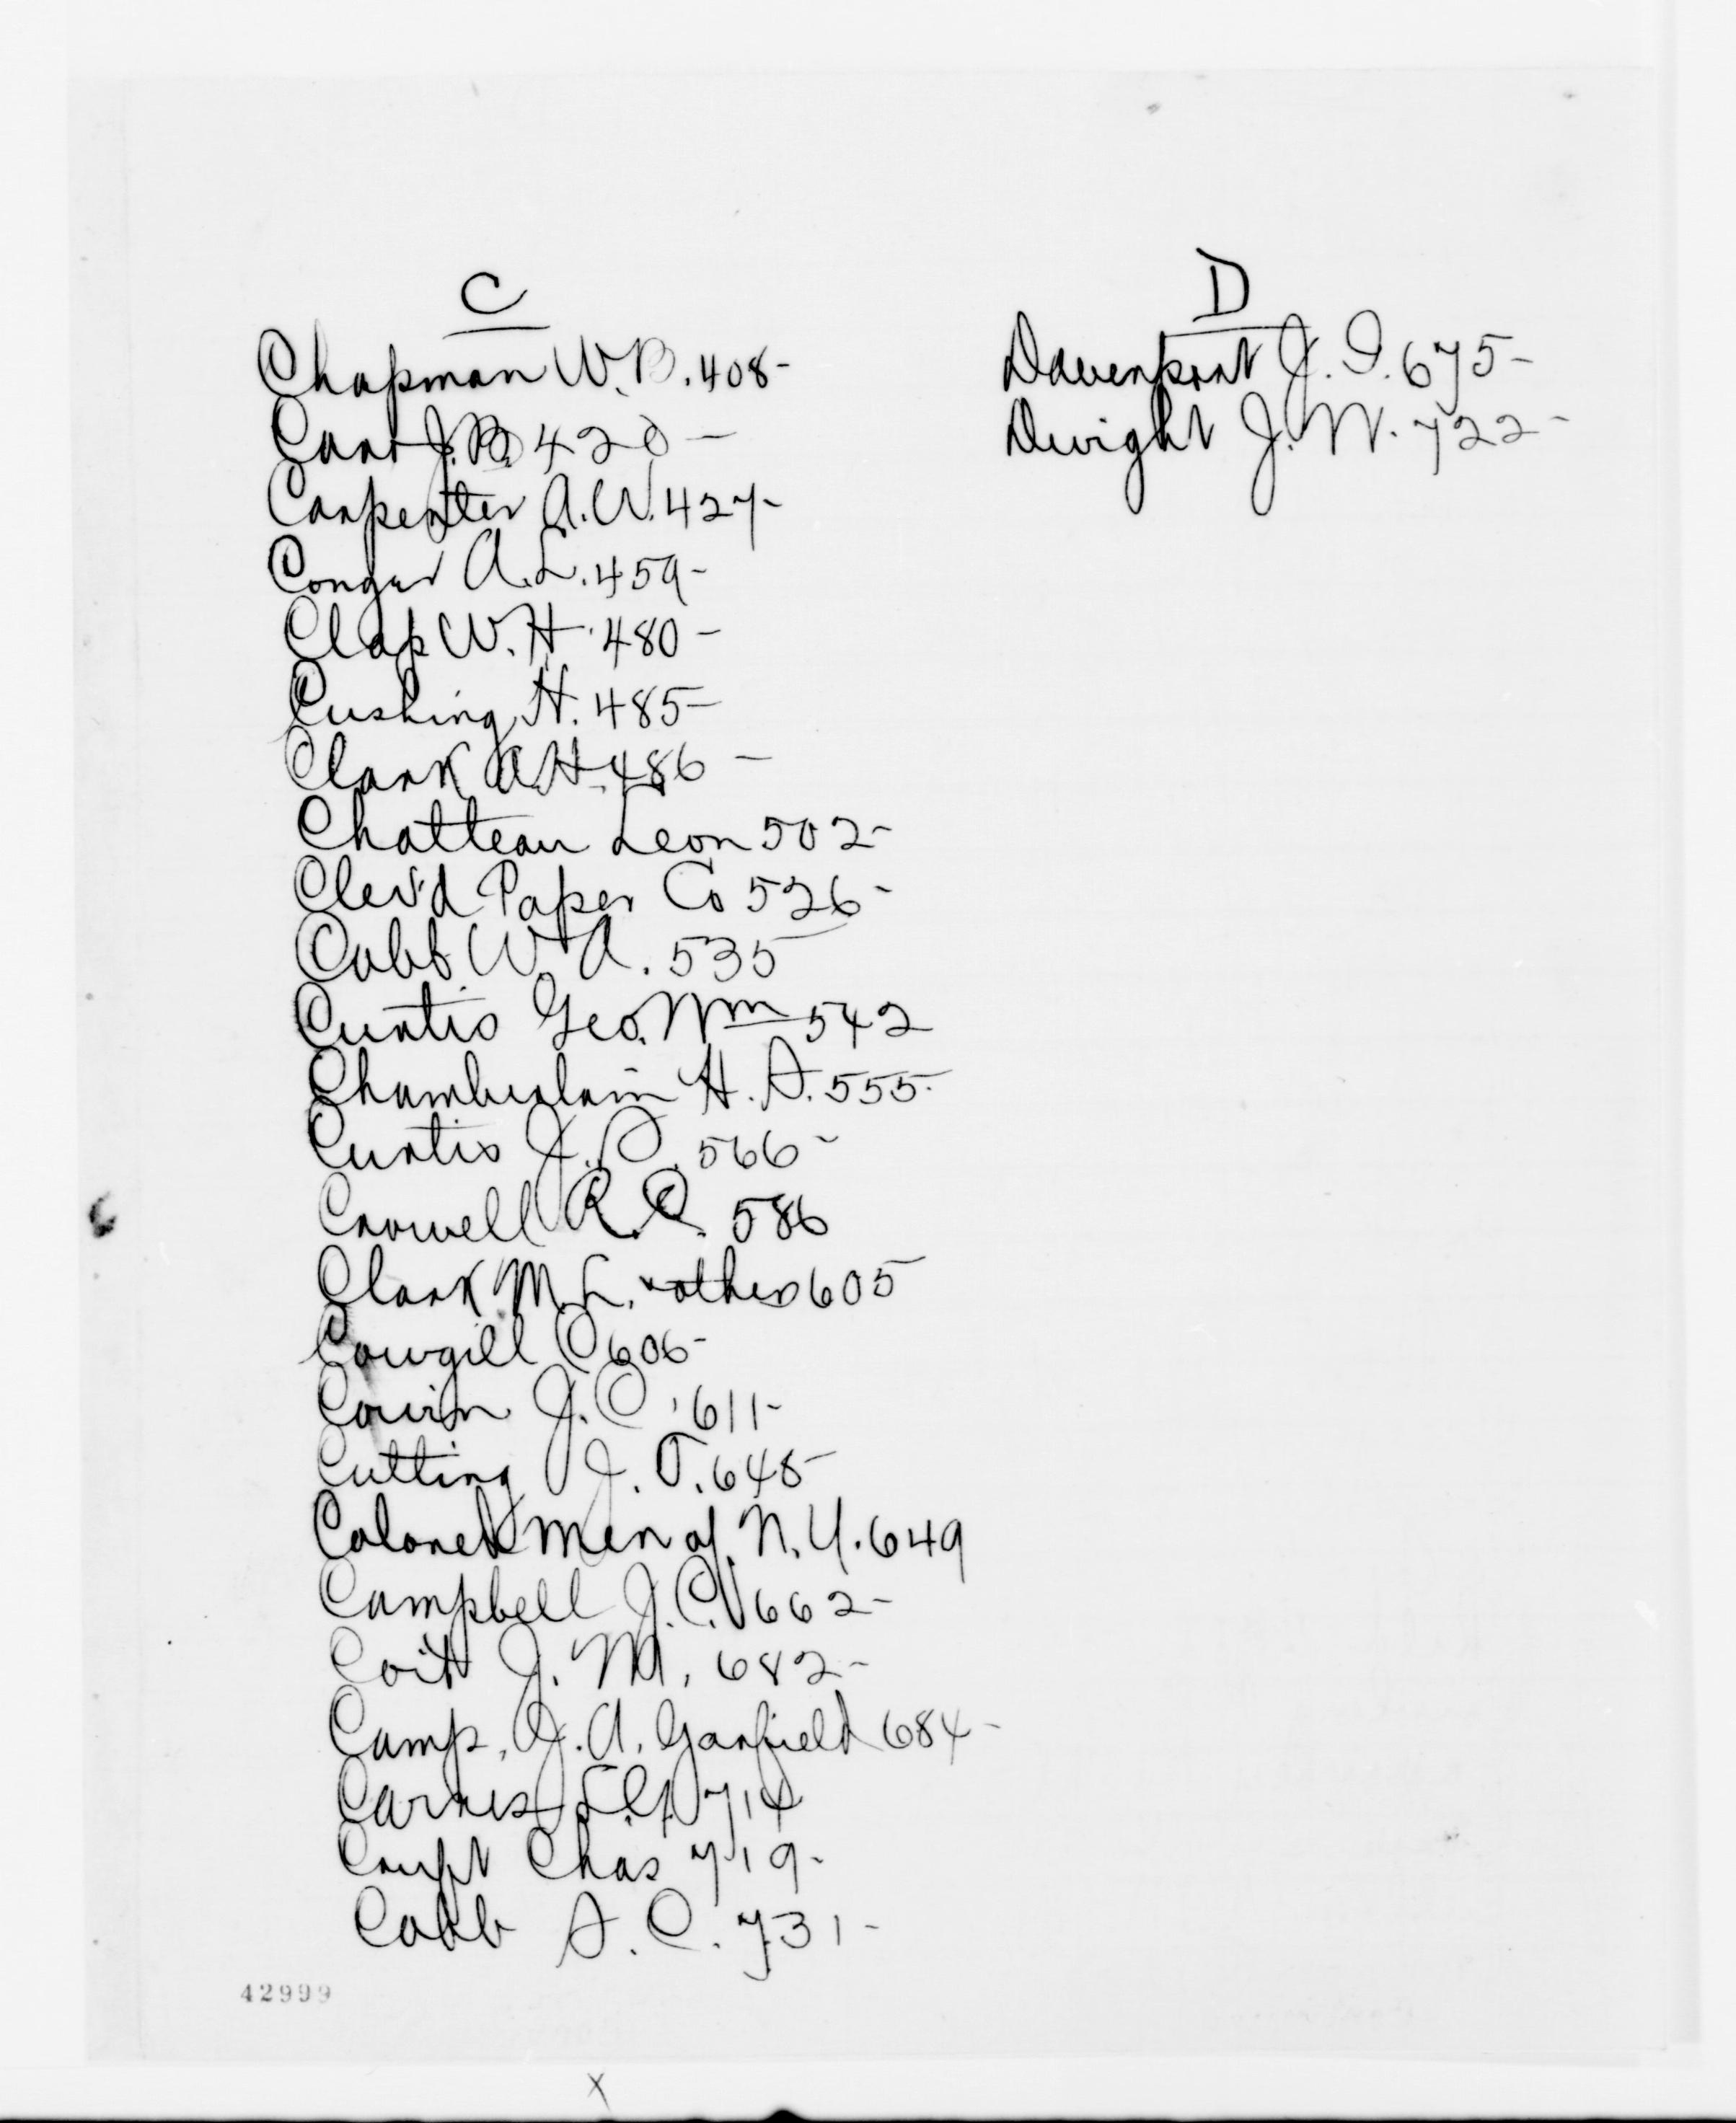 C
Chapman W.B. 408-
Carr J.B. 420-
Carpenter A.W. 427-
Conger A.L. 459-
Clap W.H. 480-
Cushing H. 485-
Clark A.H. 486-
Chatteau Leon 502-
Clev'd Paper Co 526-
Cobb W.A. 535-
Curtis Geo. Wm 542
Chamberlain H.S. 555-
Curtis J. 566-
Crowell R.C. 586
Clark M.L. & others 605-
Cowgill C 606-
Cowin J.C. 611-
Cutting J.T. 648-
Colored Men of N.Y. 649
Campbell J.C. 662-
Coit J.M. 682-
Camp, J.A. Garfield 684-
714
Chas 719-
Cobb S.C. 731-
D
Davenport J.I. 675-
Dwight J.W. 722-
42999
X